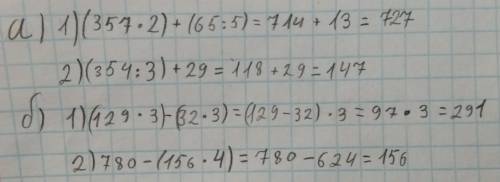 а) 1)(357·2)+(65:5)=714+13=727
2)(354:3)+29=118+29=147
б) 1)(129·3)-(32·3)=(129-32)·3=97·3=291
2)780-(156·4)=780-624=156